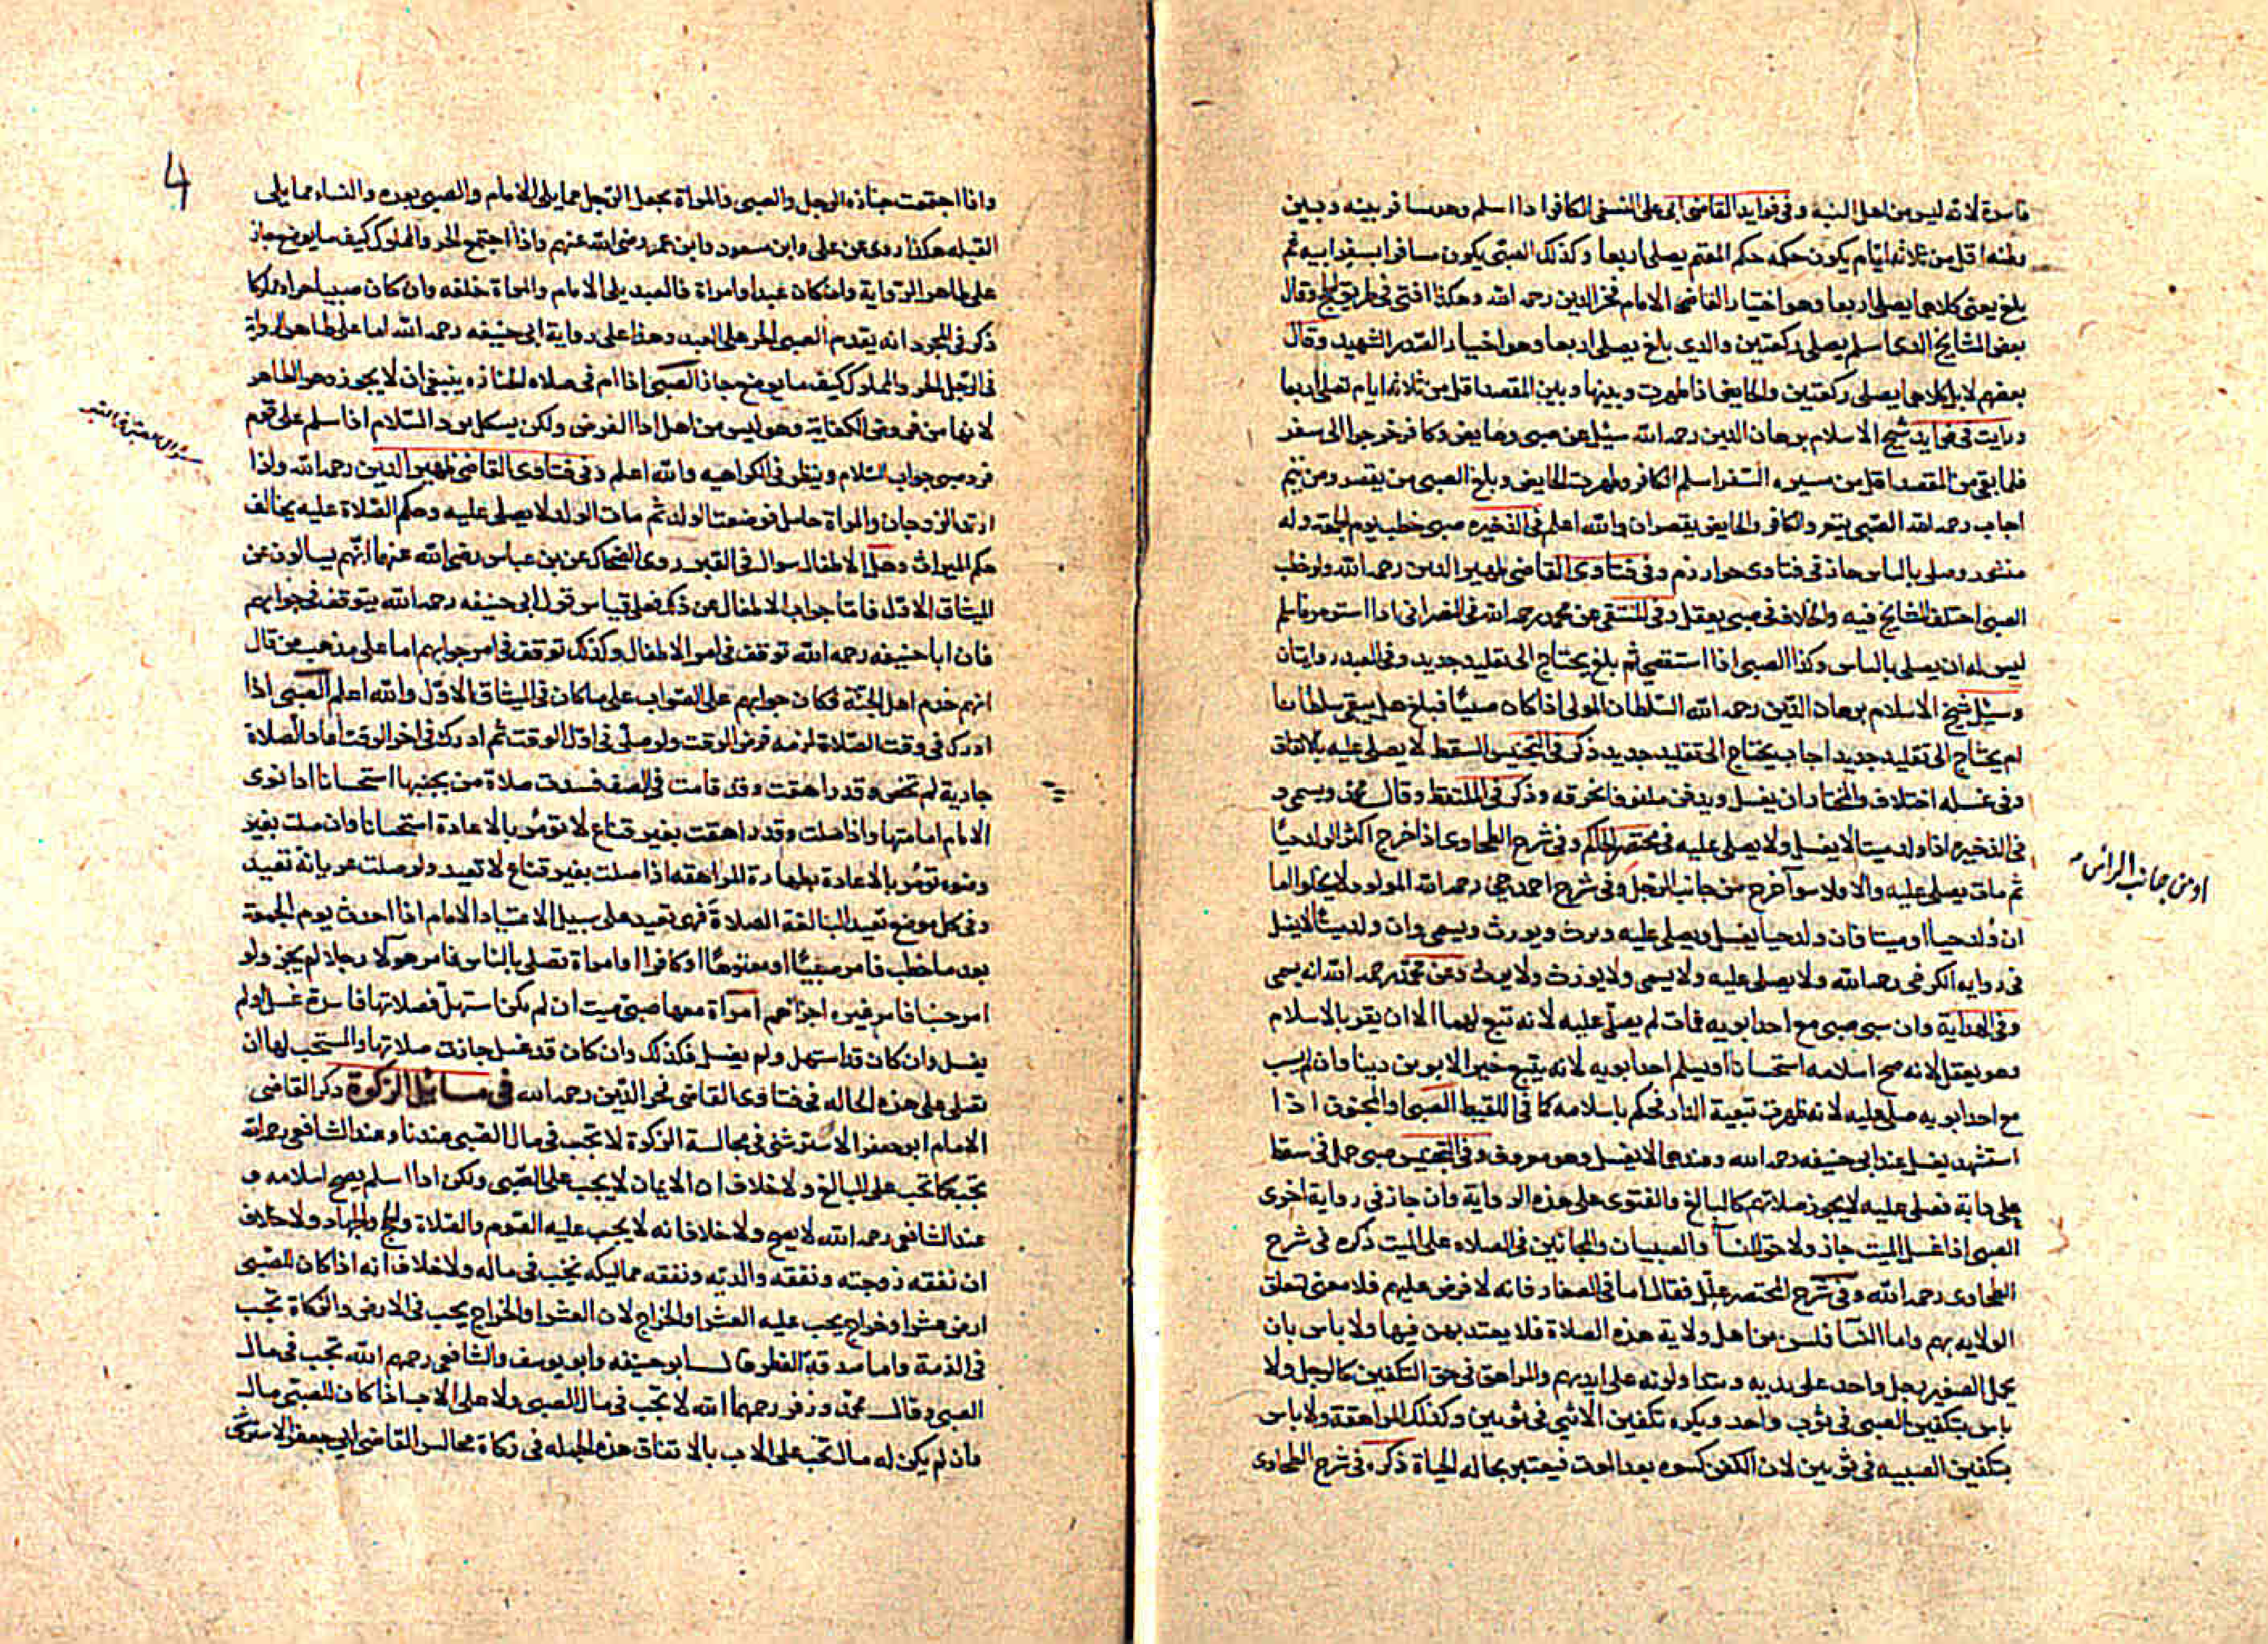 فاسدة لانه ليس من اهل النية وفي فوايد القاضي ابي علي النسفي الكافر اذا اسلم وهو مسافر بينه وبين
وطنه اقل من ثلاثه ايام يكون حكمه حكم المقيم يصلي اربعا وكذلك الصبي يكون مسافرا بسفر ابيه ثم
بلغ يعني كلاهما يصلي اربعا وهو اختيار القاضي الامام فخر الدين رحمه الله وهكذا افتى في طريق الحج وقال
بعض المشايخ الذي اسلم يصلي ركعتين والذي بلغ يصلي اربعا وهو اختيار الصدر الشهيد وقال
بعضهم لا بل كلاهما يصلي ركعتين والحايض اذا طهرت وبينها وبين المقصد اقل من ثلاثه ايام تصلي اربعا
ورايت في فوايد شيخ الاسلام برهان الدين رحمه الله سئل عن صبي وحايض وكافر خرجوا الى سفر
فلما بقي من المقصد اقل من مسيره السفر اسلم الكافر وطهرت الحايض وبلغ الصبي من يقصر ومن يتم
اجاب رحمه الله الصبي يتم والكافر والحايض يقصران والله اعلم في الذخيره صبي خطب يوم الجمعة وله
منشور وصلى بالناس جاز في فتاوى خوارزم وفي فتاوى القاضي ظهير الدين رحمه الله ولو خطب
الصبي اختلف المشايخ فيه والخلاف في صبي يعقل وفي المنتقى عن محمد رحمه الله في النصراني اذا استؤمر فاسلم
ليس له ان يصلي بالناس وكذا الصبي اذا استقضي ثم بلغ يحتاج الى تقليد جديد وفي العبد روايتان
وسئل شيخ الاسلام برهان الدين رحمه الله السلطان المولى اذا كان صبيا فبلغ هل يبقى سلطانا
ام يحتاج الى تقليد جديد اجاب يحتاج الى تقليد جديد ذكر في التجنيس السقط لا يصلى عليه بالاتفاق
وفي غسله اختلاف والمختار ان يغسل ويدفن ملفوفا بخرقه وذكر في الملتقط وقال محمد ويسمى و
في الذخيره اذا ولد ميتا لا يغسل ولا يصلى عليه في مختصر الحاكم وفي شرح الطحاوي اذا خرج اكثر الولد حيا
ثم مات يصلى عليه والا ولا سوآ خرج من جانب الرجل وفي شرح احمد حجي رحمه الله المولود لا يخلو اما
او من جانب الراس
ان ولد حيا او ميتا فان ولد حيا يغسل ويصلى عليه ويرث ويورث ويسمى وان ولد ميتا لا يغسل
في روايه الكرخي رحمه الله ولا يصلى عليه ولا يسمى ولا يورث ولا يرث وعن محمد رحمه الله انه يسمى
وفي الهداية وان سبي صبي مع احد ابويه فمات لم يصل عليه لانه تبع لهما الا ان يقر بالاسلام
وهو يعقل لانه صح اسلامه استحسانا او يسلم احد ابويه لانه يتبع خير الابوين دينا وان لم يسب
مع احد ابويه صلي عليه لانه ظهرت تبعية الدار فحكم باسلامه كما في اللقيط الصبي او المجنون اذا
استشهد يغسل عند ابي حنيفه رحمه الله وعندهما لا يغسل وهو معروف وفي التجنيس صبي حمل في سقط
على دابة فصلي عليه لا يجوز صلاتهم كالبالغ والفتوى على هذه الرواية وان جاز في رواية اخرى
الصبي اذا غسل الميت جاز ولا حق للنسآ والصبيان والمجانين في الصلاه على الميت ذكره في شرح
الطحاوي رحمه الله وفي شرح المختصر علل فقال اما في الصغار فانه لا فرض عليهم فلا معنى لتعلق
الولايه بهم واما النسآ فلسن من اهل ولاية هذه الصلاة فلا يعتد بهن فيها ولا باس بان
يحمل الصغير رجل واحد على يديه ويتداولونه على ايديهم والمراهق في حق التكفين كالرجل ولا
باس بتكفين الصبي في ثوب واحد ويكره تكفين الانثى في ثوبين وكذلك المراهقة ولا باس
بتكفين الصبيه في ثوبين لان الكفن كسوه بعد الموت فيعتبر بحاله الحياة ذكره في شرح الطحاوي
4
واذا اجتمعت جنازه الرجل والصبي والمراة يجعل الرجل مما يلي الامام والصبي بعده والنساء مما يلي
القبله هكذا روي عن علي وابن مسعود وابن عمر رضي الله عنهم واذا اجتمع الحر والمملوك كيف ما يوضع جاز
على ظاهر الرواية وان كان عبدا وامراة فالعبد يلي الامام والمراة خلفه وان كان صبيا حرا ومملوكا
ذكر في المجرد انه يقدم الصبي الحر على العبد وهذا على رواية ابي حنيفه رحمه الله اما على ظاهر الرواية
في الرجل الحر والمملوك كيف ما يوضع جاز الصبي اذا ام في صلاه الجنازه ينبغي ان لا يجوز وهو الظاهر
لانها من فروض الكفاية وهو ليس من اهل اداء الفرض ولكن يشكل برد السلام اذا سلم على قوم
فرد صبي جواب السلام وينظر في الكراهيه والله اعلم وفي فتاوى القاضي ظهير الدين رحمه الله واذا
سؤال الصبي في القبر
ارتد الزوجان والمراة حامل فوضعت الولد ثم مات الولد لا يصلى عليه وحكم الصلاة عليه يخالف
حكم الميراث وهل للاطفال سوال في القبر روى الضحاك عن بن عباس رضي الله عنهما انهم يسالون عن
الميثاق الاول فاما جواب الاطفال عن ذلك فعلى قياس قول ابي حنيفه رحمه الله يتوقف في جوابهم
فان ابا حنيفه رحمه الله توقف في امر الاطفال وكذلك توقف في امر جوابهم اما على مذهب من قال
انهم خدم اهل الجنة فكان جوابهم على الصواب على ما كان في الميثاق الاول والله اعلم الصبي اذا
ادرك في وقت الصلاة لزمه فرض الوقت ولو صلى في اول الوقت ثم ادرك في اخر الوقت اعاد الصلاة
جارية لم تحض وقد راهقت وقد قامت في الصف فسدت صلاة من بجنبها استحسانا اذا نوى
الامام امامتها واذا صلت وقد راهقت بغير قناع لا تؤمر بالاعادة استحسانا وان صلت بغير
وضوء تؤمر بالاعادة بطهارة المراهقه اذا صلت بغير قناع لا تعيد ولو صلت عريانة تعيد
وفي كل موضع تعيد البالغة الصلاة فهي تعيد على سبيل الاعتياد الامام اذا احدث يوم الجمعة
بعد ما خطب فامر صبيا او معتوها او كافرا او امراة تصلي بالناس فامر هولآ رجلا لم يجز ولو
امر جنبا فامر غيره اجزاهم امرآة معها صبي ميت ان لم يكن استهل فصلاتها فاسدة غسل او لم
يغسل وان كان قد استهل ولم يغسل فكذلك وان كان قد غسل جازت صلاتها والمستحب لها ان
تصلي على هذه الحاله في فتاوى القاضي فخر الدين رحمه الله في مسائل الزكوة ذكر القاضي
الامام ابو جعفر الاستروشني في مجالسه الزكوة لا تجب في مال الصبي عندنا وعند الشافعي رحمه الله
تجب كما تجب على البالغ ولا خلاف ان الايمان لا يجب على الصبي ولكن اذا اسلم يصح اسلامه و
عند الشافعي رحمه الله لا يصح ولا خلاف انه لا يجب عليه الصوم والصلاة والحج والجهاد ولا خلاف
ان نفقه زوجته ونفقه والديه ونفقه مماليكه تجب في ماله ولا خلاف انه اذا كان للصبي
ارض عشر او خراج يجب عليه العشر او الخراج لان العشر او الخراج يجب في الارض والزكاة تجب
في الذمة واما صدقة الفطر قال ابو حنيفه وابو يوسف والشافعي رحمهم الله تجب في مال
الصبي وقال محمد وزفر رحمهما الله لا تجب في مال الصبي ولا على الاب اذا كان للصبي مال
وان لم يكن له مال تجب على الاب بالاتفاق هذه الجمله في زكاة مجالس القاضي ابي جعفر الاستروشني